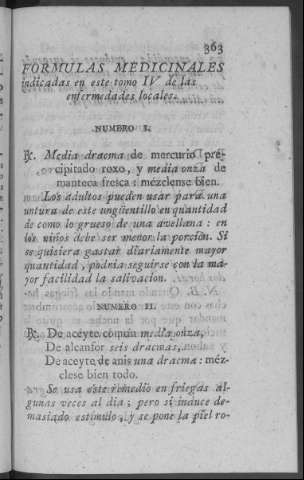 363
FORMULAS MEDICINALES
indicadas en este tomo IV de las
enfermedades locales.
NUMERO I.
℞. Media dracma de mercurio pre-
cipitado roxo, y media onza de
manteca fresca: mézclense bien.
Los adultos pueden usar para una
untura de este ungüentillo en quantidad
de como lo grueso de una avellana: en
los niños debe ser menor la porcion. Si
se quisiera gastar diariamente mayor
quantidad, podria seguirse con la ma-
yor facilidad la salivacion.
NUMERO II.
℞. De aceyte comun media onza,
De alcanfor seis dracmas,
De aceyte de anis una dracma: méz-
clese bien todo.
Se usa este remedio en friegas al-
gunas veces al dia; pero si induce de-
masiado estimulo, y se pone la piel ro-